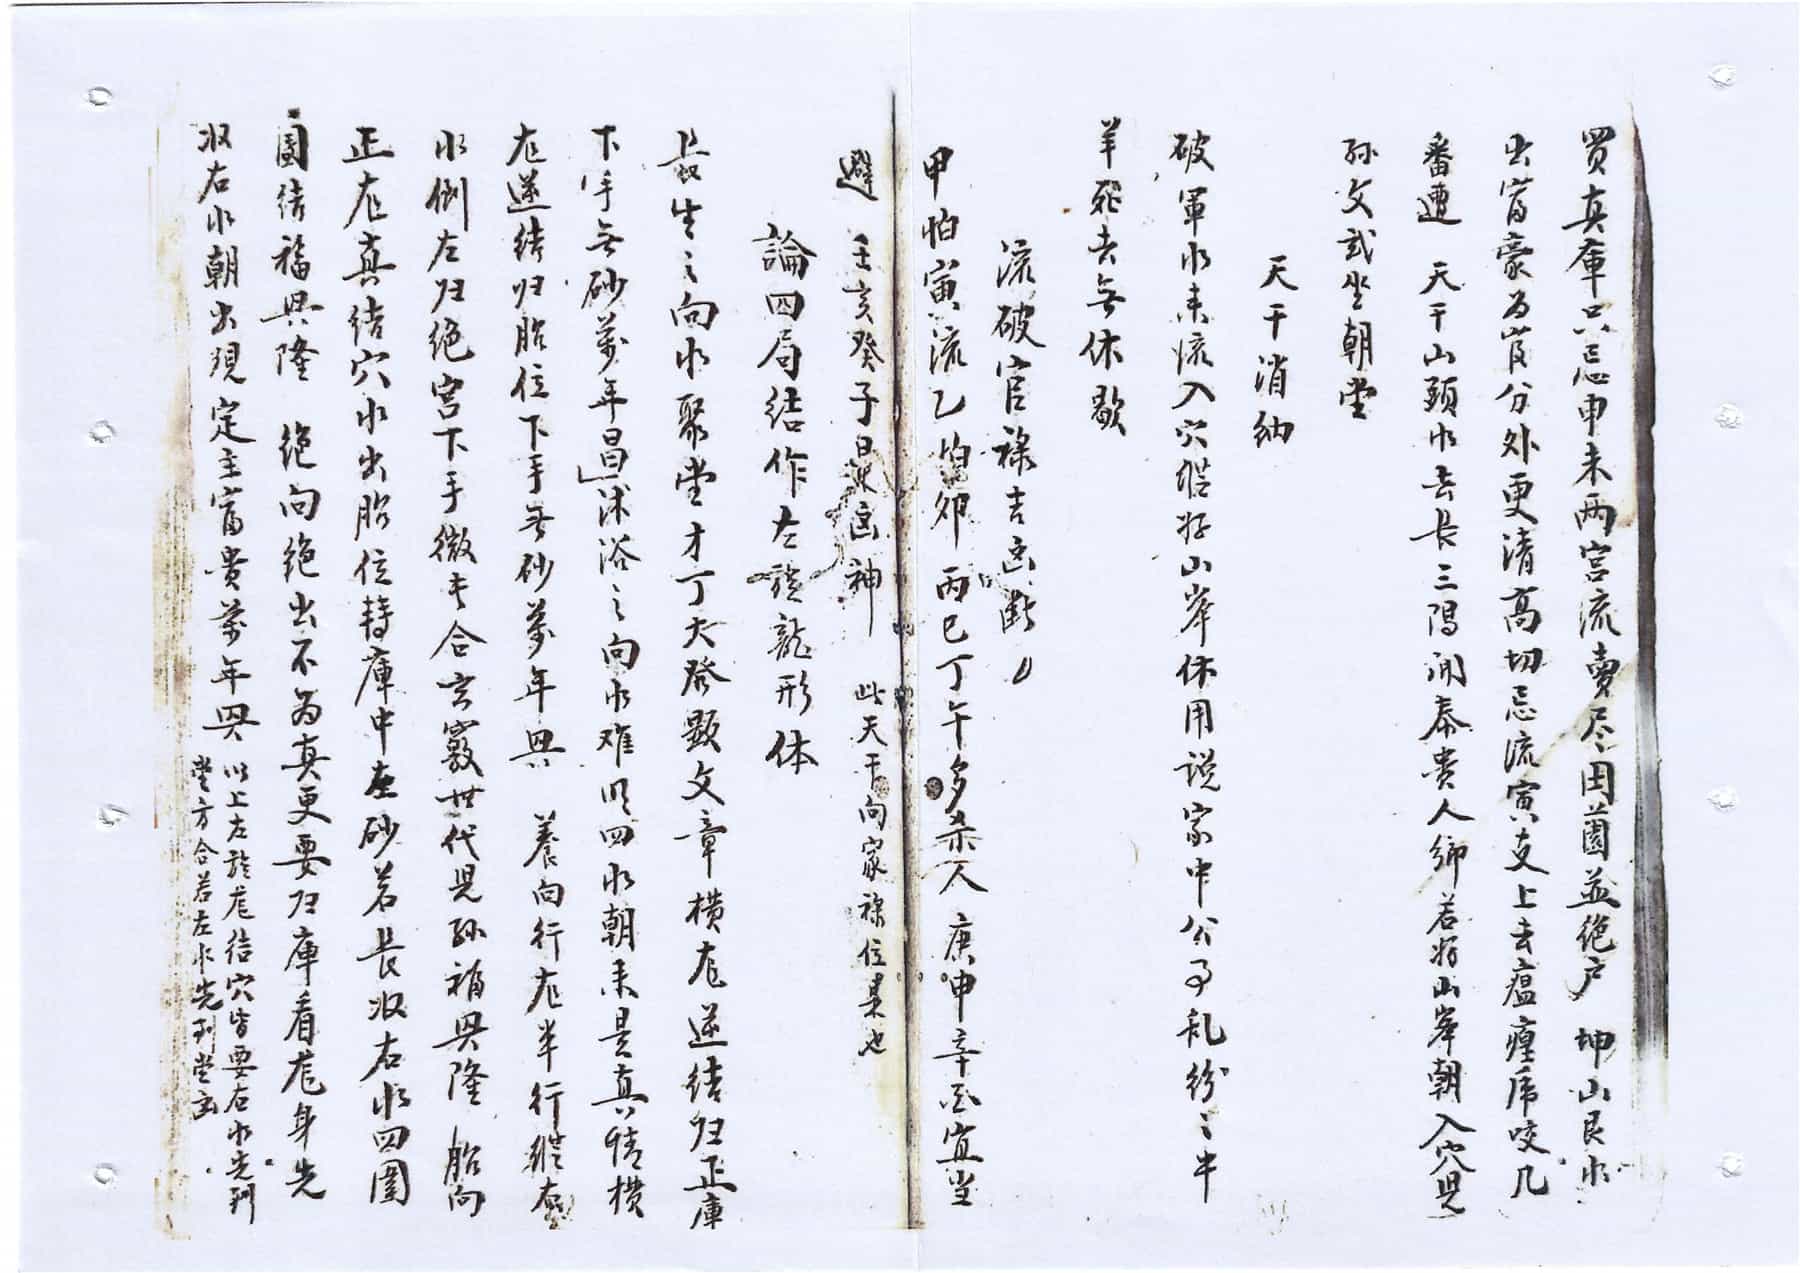 買真庫只忌申未两宫流賣尽田園並絶户 坤山艮水
出富豪为官分外更清高切忌流寅支上去瘟㾏虎咬几
番遭 天干山頭水去長三陽洞泰貴人鄉若好山峯朝入穴児
孫文武坐朝堂
天干消納
破軍水来流入穴縦好山峯休用説家中公事乱紛々牛
羊死去無休歇
流破官禄吉凶断
甲怕寅流乙怕卯 丙巳丁午多杀人 庚申辛酉宜当
避 壬亥癸子是凶神 此天干向家禄位是也
論四局结作左旋龍形体
長生之向水聚堂才丁大發顕文章横龙逆结归正庫
下手無砂萬年昌沭浴之向水难明四水朝来是真情横
龙逆结归胎位下手無砂萬年興 養向行龙半行縱右
水倒左归绝宫下手微長合玄竅世代児孫福興隆 胎向
正龙真结穴水出胎位轉庫中左砂若長收右水四圍
圍结福興隆 绝向绝出不为真更要归庫看龙身先
收右水朝出現定主富貴萬年興 以上左旋龙结穴皆要右水先到
堂方合若左水先到堂凶